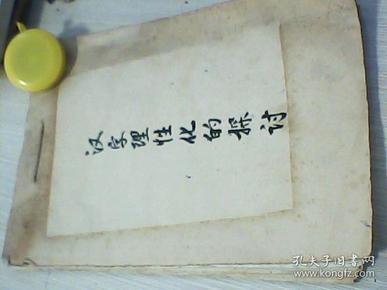 汉字理性化的探讨
孔夫子旧书网
www.kongfz.com